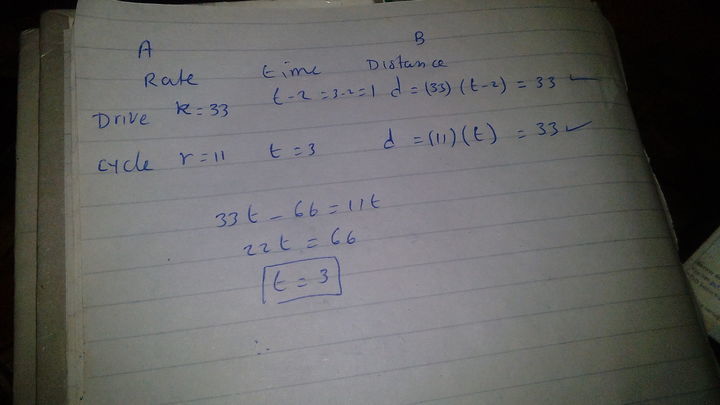 A B
Rate time Distance
Drive r = 33 t - 2 = 3-2 = 1 d = (33) (t-2) = 33 ✓
cycle r = 11 t = 3 d = (11) (t) = 33 ✓
33t - 66 = 11t
22t = 66
t = 3